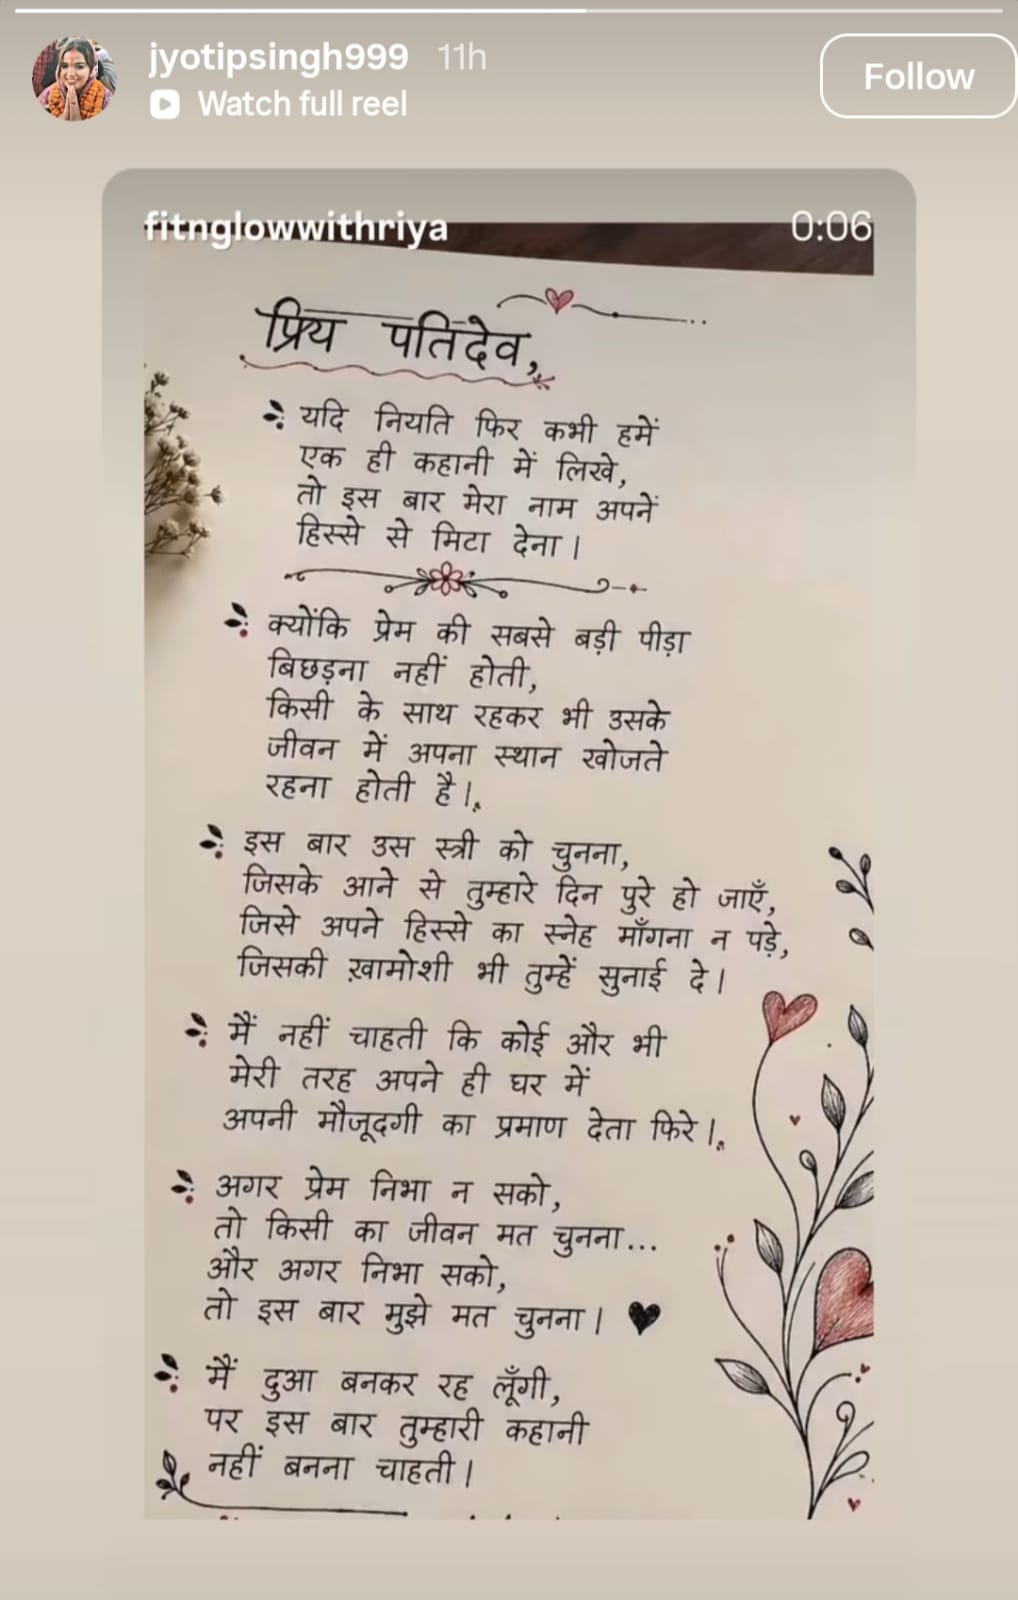 jyotipsingh999 11h
Follow
Watch full reel
fitnglowwithriya 0:06
प्रिय पतिदेव,
यदि नियति फिर कभी हमें
एक ही कहानी में लिखे,
तो इस बार मेरा नाम अपनें
हिस्से से मिटा देना।
क्योंकि प्रेम की सबसे बड़ी पीड़ा
बिछड़ना नहीं होती,
किसी के साथ रहकर भी उसके
जीवन में अपना स्थान खोजते
रहना होती है।
इस बार उस स्त्री को चुनना,
जिसके आने से तुम्हारे दिन पुरे हो जाएँ,
जिसे अपने हिस्से का स्नेह माँगना न पड़े,
जिसकी ख़ामोशी भी तुम्हें सुनाई दे।
मैं नहीं चाहती कि कोई और भी
मेरी तरह अपने ही घर में
अपनी मौजूदगी का प्रमाण देता फिरे।
अगर प्रेम निभा न सको,
तो किसी का जीवन मत चुनना...
और अगर निभा सको,
तो इस बार मुझे मत चुनना। ♥
मैं दुआ बनकर रह लूँगी,
पर इस बार तुम्हारी कहानी
नहीं बनना चाहती।